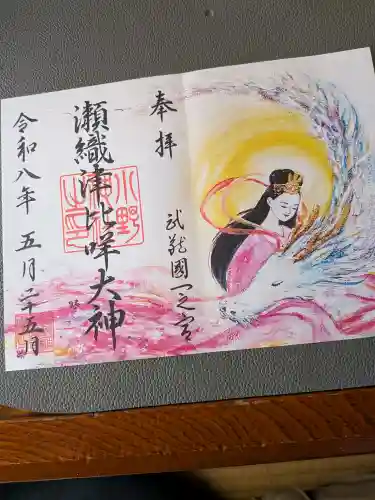 奉拝
武蔵國一之宮
瀬織津比咩大神
小野神社之印
令和八年 五月二十五日